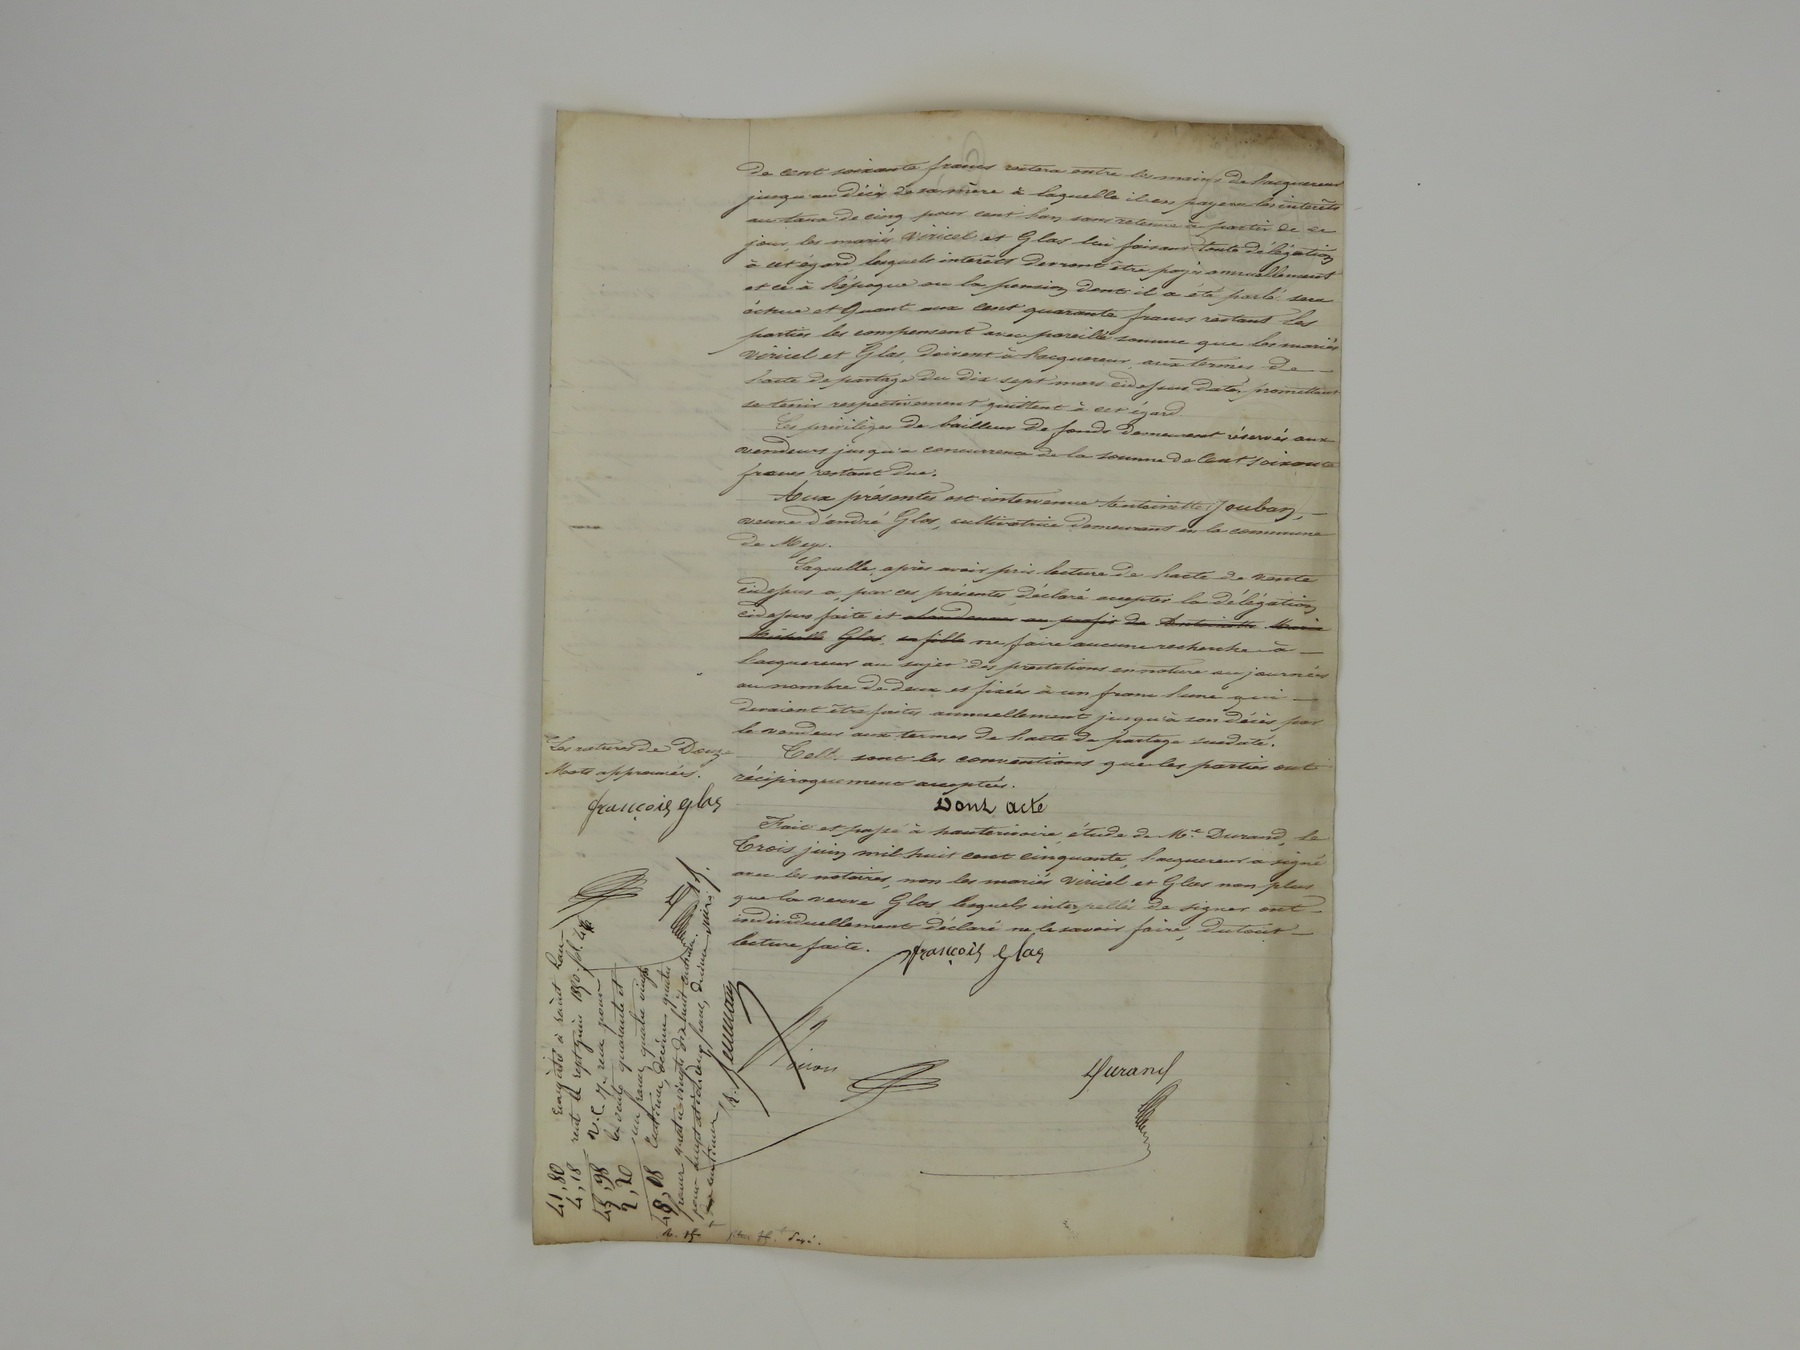 de cent soixante francs restera entre les mains de l'acquereur
jusqu'au décès de sa mère à laquelle il en payera les intérêts
au taux de cinq pour cent l'an sans retenue à partir de ce
jour les mariés Viricel et Glas lui faisant toute délégation
à cet égard lesquels intérêts devront être payés annuellement
et ce à l'époque ou la pension dont il a été parlé sera
échue et Quant aux cent quarante francs restant les
parties les compensent avec pareille somme que les mariés
Viricel et Glas, doivent à l'acquereur aux termes de
l'acte de partage du dix sept mars cidessus daté, promettant
se tenir respectivement quittent à cet égard.
Les priviléges de bailleur de fonds demeurent réservés aux
vendeurs jusqu'a concurrence de la somme de Cent soixante
francs restant due.
Aux présentes est intervenue Antoinette Jouban,
veuve d'andré Glas, cultivatrice demeurant en la commune
de Meys.
Laquelle après avoir pris lecture de l'acte de vente
cidessus a par ces présentes déclaré accepter la délégation
cidessus faite et abandonner au profit de Antoinette Marie
Glas, sa fille ne faire aucune recherche à
l'acquereur au sujet des prestations en nature ou journées
au nombre de deux et fixées à un franc l'une qui
devaient être faites annuellement jusqu'à son décès par
le vendeur aux termes de l'acte de partage susdaté.
Telles sont les conventions que les parties ont
réciproquement acceptées.
Dont acte
Fait et passé à hauterivoire, étude de Me Durand, le
Trois juin mil huit cent cinquante, l'acquereur a signé
avec les notaires, non les mariés Viricel et Glas non plus
que la veuve Glas lesquels interpellés de signer ont
individuellement déclaré ne le savoir faire, du tout
lecture faite.
françois glas
Durand
Les ratures de Douze
Mots approuvées.
françois glas
Enregistré à saint Lau-
rent le sept juin 1850. fol. 46
v. C. 7. reçu pour
la vente quarante et
un francs quatre vingt
Centimes, décime quatre
francs dix huit centimes
41,80
4,18
45,98
2,20
48,18